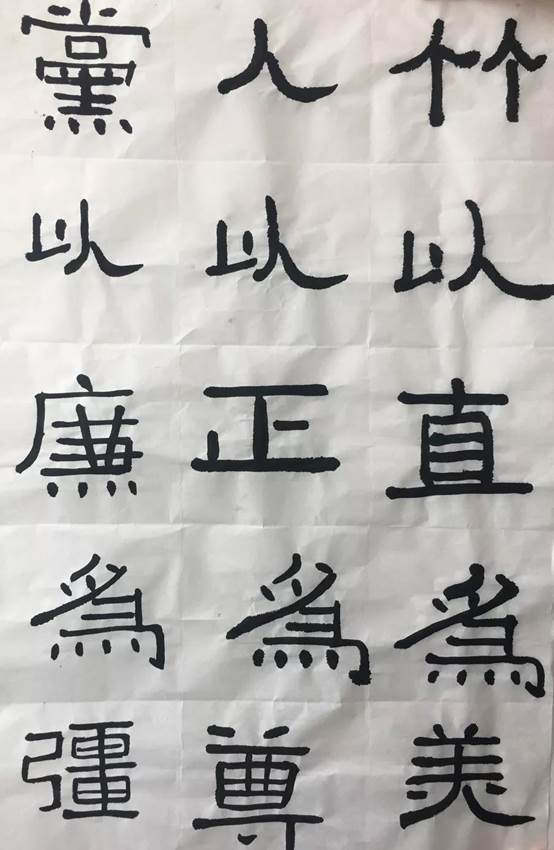 竹以直爲美
人以正爲尊
黨以廉爲彊